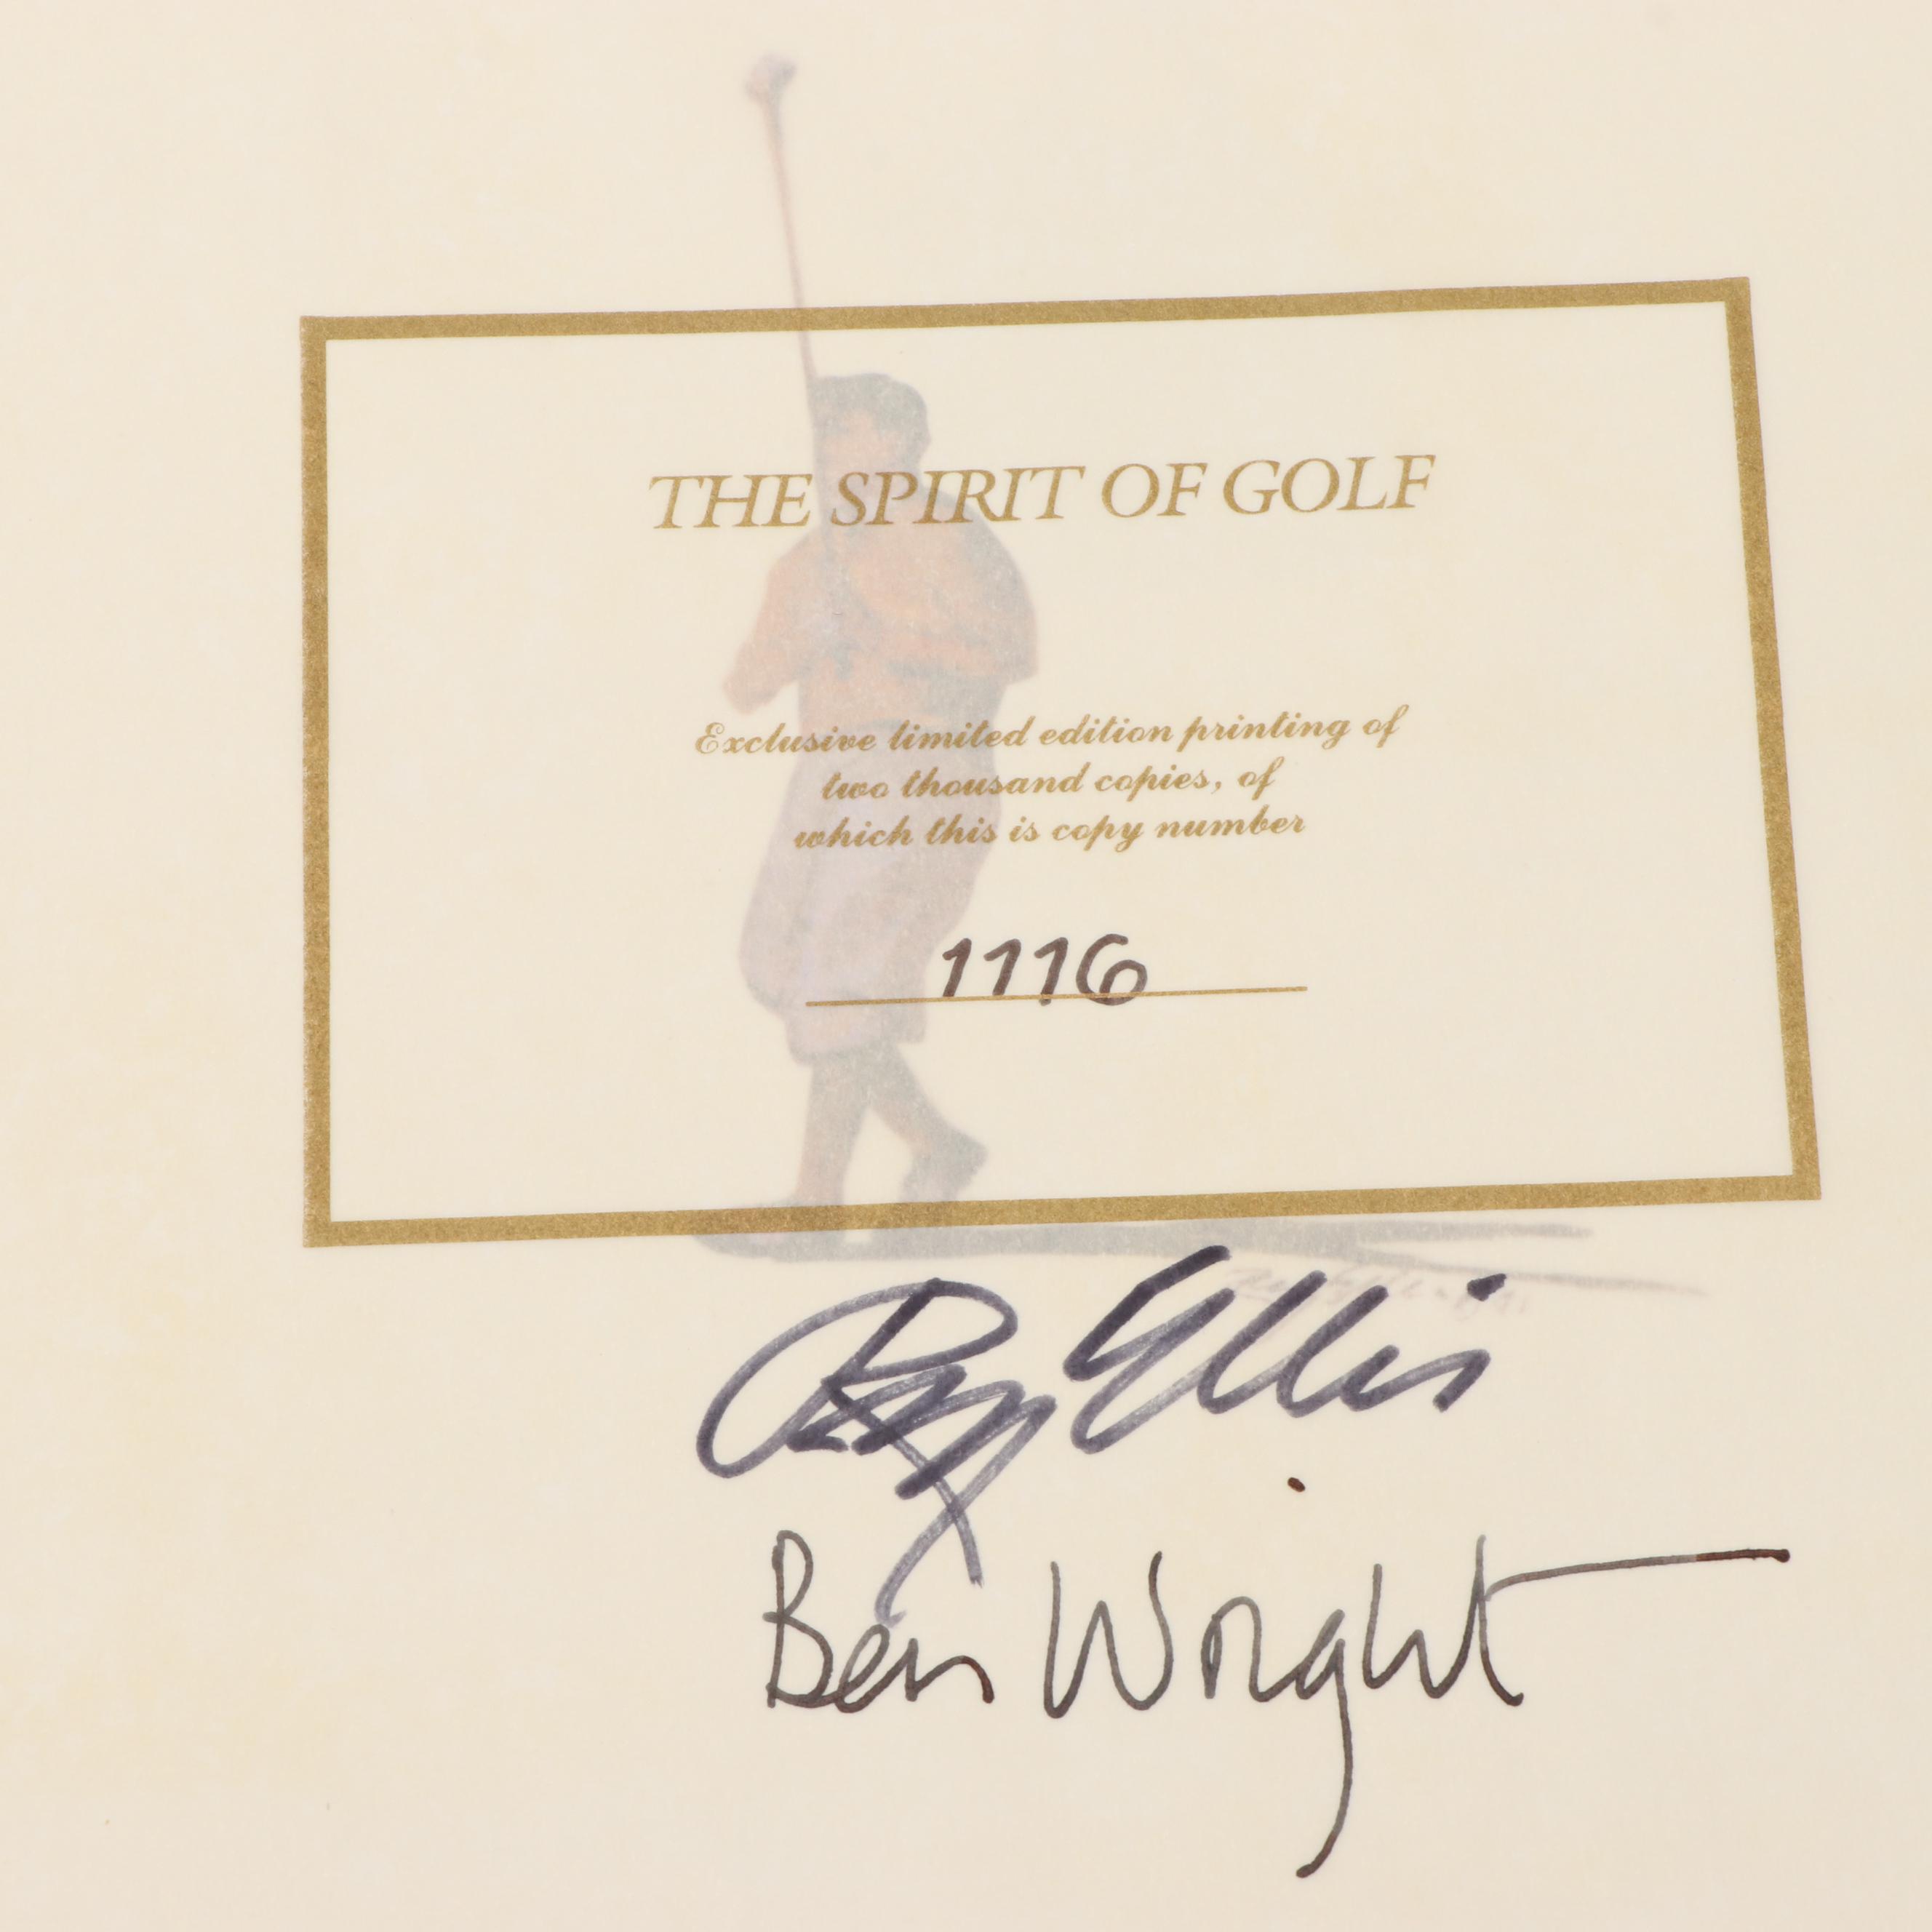 THE SPIRIT OF GOLF
Exclusive limited edition printing of
two thousand copies, of
which this is copy number
1116
Ray Ellis
Ben Wright